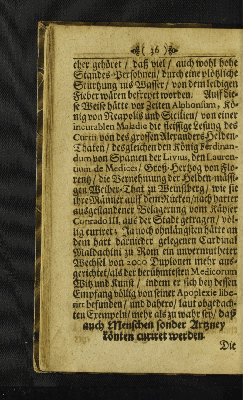 ( 36 )
eher gehöret / daß viel / auch wohl hohe
Standes-Persohnen / durch eine plötzliche
Stürtzung ins Wasser / von dem leidigen
Fieber wären befreyet worden. Auff die-
se Weise hätte vor Zeiten Alphonsum, Kö-
nig von Neapolis und Sicilien / von einer
incurablen Maladie die fleissige Lesung des
Curtii von des grossen Alexanders Helden-
Thaten / desgleichen den König Ferdinan-
dum von Spanien der Livius, den Lauren-
tium de Medices / Groß-Hertzog von Flo-
rentz / die Vernehmung der Helden-mässi-
gen Weiber-That zu Weinsberg / wie sie
ihre Männer auff dem Rücken / nach harter
ausgestandener Belagerung vom Käyser
Conrado III, aus der Stadt getragen / völ-
lig curiret. Ja noch ohnlängsten hätte an
dem hart darnieder gelegenen Cardinal
Maldachini zu Rom ein unvermutheter
Wechsel von 2000 Duplonen mehr aus-
gerichtet / als der berühmtesten Medicorum
Witz und Kunst / indem er sich bey dessen
Empfang völlig von seiner Apoplexie libe-
rirt befunden / und dahero / laut obgedach-
ten Exempeln / mehr als zu wahr sey / daß
auch Menschen sonder Artzney
könten curiret werden.
Die